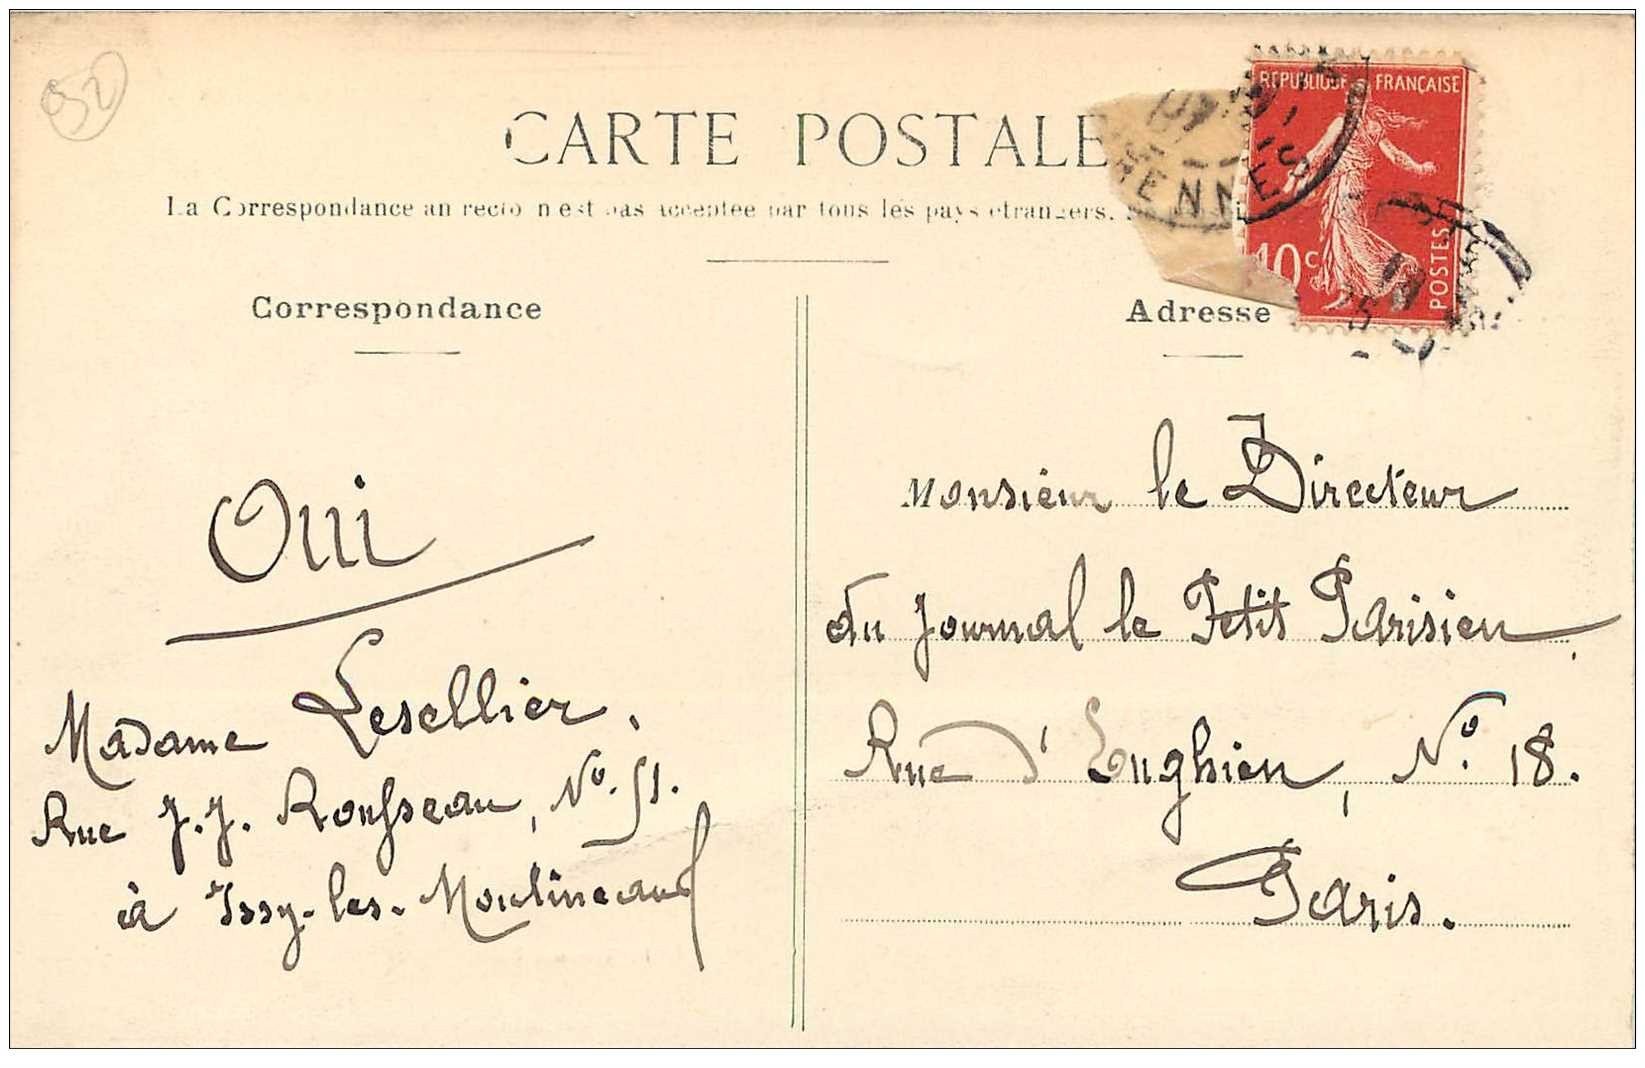 52
CARTE POSTALE
La Correspondance au recto n'est pas acceptée par tous les pays étrangers.
RÉPUBLIQUE FRANÇAISE
10 c
POSTES
Correspondance
Adresse
Oui
Madame Lesellier.
Rue J.J. Rousseau, No. 51.
à Issy-les-Moulineaux
Monsieur le Directeur
du Journal le Petit Parisien.
Rue d'Enghien, No. 18.
Paris.